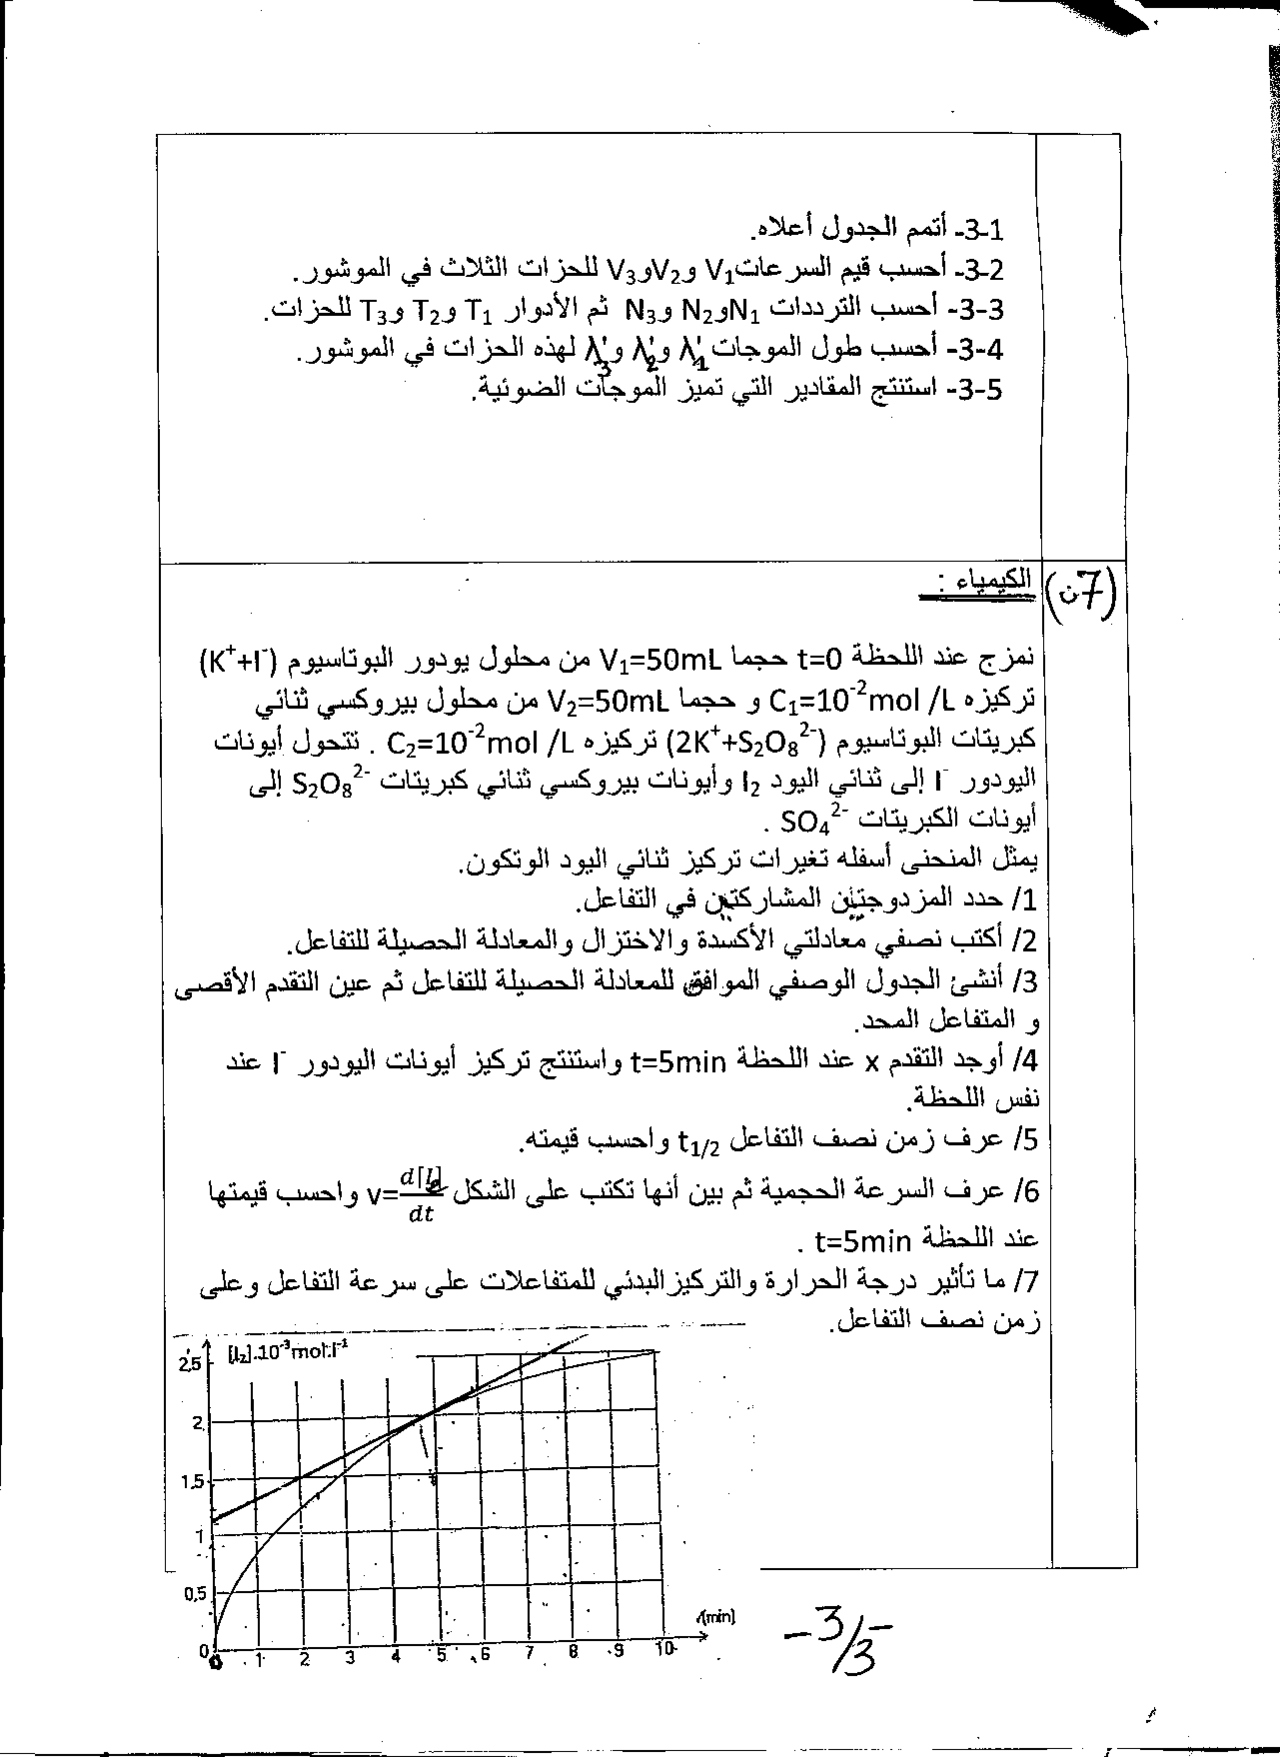 3-1- أتمم الجدول أعلاه.
3-2- أحسب قيم السرعات V₁ وV₂ وV₃ للحزات الثلاث في الموشور.
3-3- أحسب الترددات N₁ وN₂ وN₃ ثم الأدوار T₁ وT₂ وT₃ للحزات.
3-4- أحسب طول الموجات λ'₁ وλ'₂ وλ'₃ لهذه الحزات في الموشور.
3-5- استنتج المقادير التي تميز الموجات الضوئية.
(7ن)
الكيمياء :
نمزج عند اللحظة t=0 حجما V₁=50mL من محلول يودور البوتاسيوم (K⁺+I⁻)
تركيزه C₁=10⁻²mol /L و حجما V₂=50mL من محلول بيروكسي ثنائي
كبريتات البوتاسيوم (2K⁺+S₂O₈²⁻) تركيزه C₂=10⁻²mol /L . تتحول أيونات
اليودور I⁻ إلى ثنائي اليود I₂ وأيونات بيروكسي ثنائي كبريتات S₂O₈²⁻ إلى
أيونات الكبريتات SO₄²⁻ .
يمثل المنحنى أسفله تغيرات تركيز ثنائي اليود الوتكون.
1/ حدد المزدوجتين المشاركتين في التفاعل.
2/ أكتب نصفي معادلتي الأكسدة والاختزال والمعادلة الحصيلة للتفاعل.
3/ أنشئ الجدول الوصفي الموافق للمعادلة الحصيلة للتفاعل ثم عين التقدم الأقصى
و المتفاعل المحد.
4/ أوجد التقدم x عند اللحظة t=5min واستنتج تركيز أيونات اليودور I⁻ عند
نفس اللحظة.
5/ عرف زمن نصف التفاعل t₁/₂ واحسب قيمته.
6/ عرف السرعة الحجمية ثم بين أنها تكتب على الشكل v=d[I₂]/dt واحسب قيمتها
عند اللحظة t=5min .
7/ ما تأثير درجة الحرارة والتركيز البدئي للمتفاعلات على سرعة التفاعل وعلى
زمن نصف التفاعل.
[I₂].10⁻³mol.l⁻¹
2,5
2
1,5
1
0,5
0
t(min)
0 1 2 3 4 5 6 7 8 9 10
-3/3-